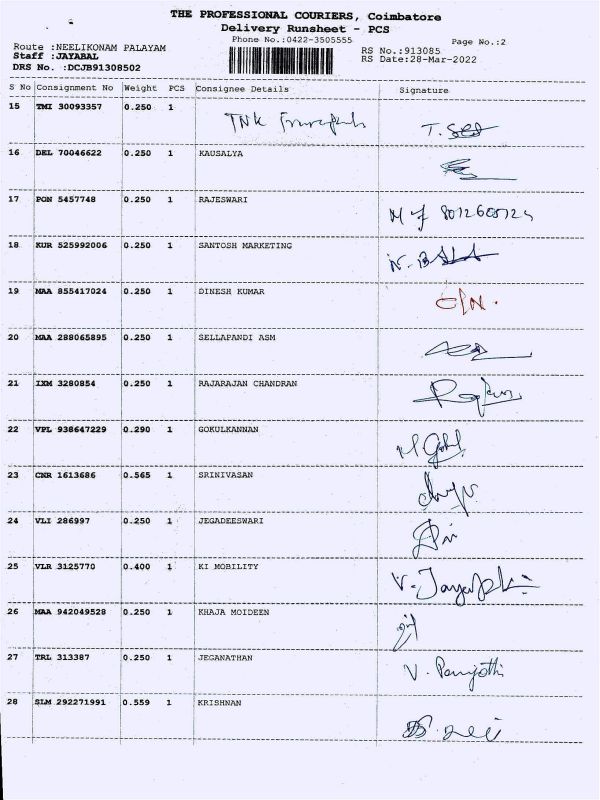 THE PROFESSIONAL COURIERS, Coimbatore
Delivery Runsheet - PCS
Phone No.:0422-3505555
Page No.:2
Route :NEELIKONAM PALAYAM
Staff :JAYABAL
DRS No. :DCJB91308502
RS No.:913085
RS Date:28-Mar-2022
S No Consignment No Weight PCS Consignee Details Signature
15 TMI 30093357 0.250 1 TNK T.
16 DEL 70046622 0.250 1 KAUSALYA
17 PON 5457748 0.250 1 RAJESWARI
18 KUR 525992006 0.250 1 SANTOSH MARKETING
19 MAA 855417024 0.250 1 DINESH KUMAR
20 MAA 288065895 0.250 1 SELLAPANDI ASM
21 IXM 3280854 0.250 1 RAJARAJAN CHANDRAN
22 VPL 938647229 0.290 1 GOKULKANNAN
23 CNR 1613686 0.565 1 SRINIVASAN
24 VLI 286997 0.250 1 JEGADEESWARI
25 VLR 3125770 0.400 1 KI MOBILITY
26 MAA 942049528 0.250 1 KHAJA MOIDEEN
27 TRL 313387 0.250 1 JEGANATHAN
28 SLM 292271991 0.559 1 KRISHNAN